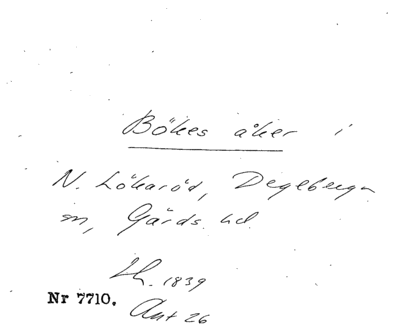 Bökes åker i
N. Lökaröd, Degeberga
sn, Gärds hd.
Lh. 1839
Nr 7710.
Ant 26